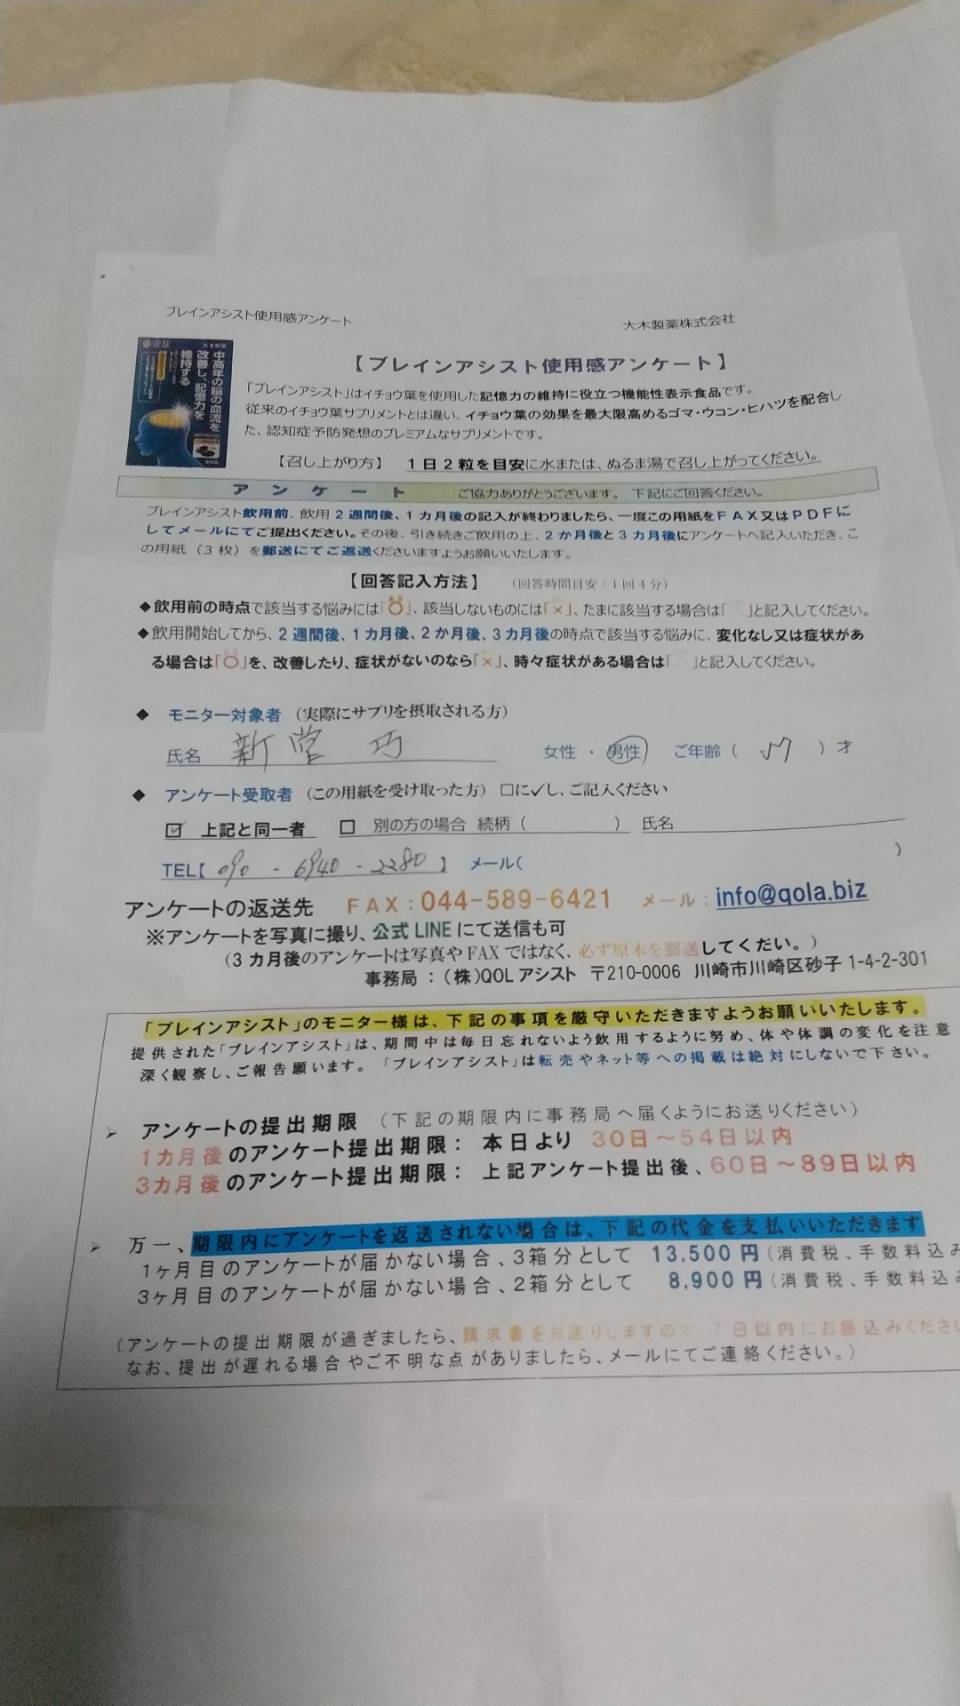 ブレインアシスト使用感アンケート
大木製薬株式会社
中高年の脳の血流を
改善し、記憶力を
維持する
【ブレインアシスト使用感アンケート】
「ブレインアシスト」はイチョウ葉を使用した記憶力の維持に役立つ機能性表示食品です。
従来のイチョウ葉サプリメントとは違い、イチョウ葉の効果を最大限高めるゴマ・ウコン・ヒハツを配合し
た、認知症予防発想のプレミアムなサプリメントです。
【召し上がり方】 1日2粒を目安に水または、ぬるま湯で召し上がってください。
アンケート ご協力ありがとうございます。 下記にご回答ください。
ブレインアシスト飲用前、飲用2週間後、1カ月後の記入が終わりましたら、一度この用紙をFAX又はPDFに
してメールにてご提出ください。その後、引き続きご飲用の上、2か月後と3カ月後にアンケートへ記入いただき、こ
の用紙（3枚）を郵送にてご返送くださいますようお願いいたします。
【回答記入方法】 （回答時間目安：1回4分）
◆飲用前の時点で該当する悩みには「○」、該当しないものには「×」、たまに該当する場合は「 」と記入してください。
◆飲用開始してから、2週間後、1カ月後、2か月後、3カ月後の時点で該当する悩みに、変化なし又は症状があ
る場合は「○」を、改善したり、症状がないのなら「×」、時々症状がある場合は「 」と記入してください。
◆ モニター対象者 （実際にサプリを摂取される方）
氏名 新堂 巧 女性 ・ 男性 ご年齢（ 57 ）才
◆ アンケート受取者 （この用紙を受け取った方） □に✓し、ご記入ください
☑ 上記と同一者 □ 別の方の場合 続柄（ ） 氏名
TEL【 090 - 6940 - 2280 】 メール（ ）
アンケートの返送先 FAX：044-589-6421 メール：info@qola.biz
※アンケートを写真に撮り、公式LINEにて送信も可
（3カ月後のアンケートは写真やFAXではなく、必ず原本を郵送してくだい。）
事務局：（株）QOLアシスト 〒210-0006 川崎市川崎区砂子1-4-2-301
「ブレインアシスト」のモニター様は、下記の事項を厳守いただきますようお願いいたします。
提供された「ブレインアシスト」は、期間中は毎日忘れないよう飲用するように努め、体や体調の変化を注意
深く観察し、ご報告願います。「ブレインアシスト」は転売やネット等への掲載は絶対にしないで下さい。
➢ アンケートの提出期限 （下記の期限内に事務局へ届くようにお送りください）
1カ月後のアンケート提出期限： 本日より 30日～54日以内
3カ月後のアンケート提出期限： 上記アンケート提出後、60日～89日以内
➢ 万一、期限内にアンケートを返送されない場合は、下記の代金を支払いいただきます
1ヶ月目のアンケートが届かない場合、3箱分として 13,500円（消費税、手数料込み
3ヶ月目のアンケートが届かない場合、2箱分として 8,900円（消費税、手数料込み
（アンケートの提出期限が過ぎましたら、請求書をお送りしますので、7日以内にお振込みください
なお、提出が遅れる場合やご不明な点がありましたら、メールにてご連絡ください。）